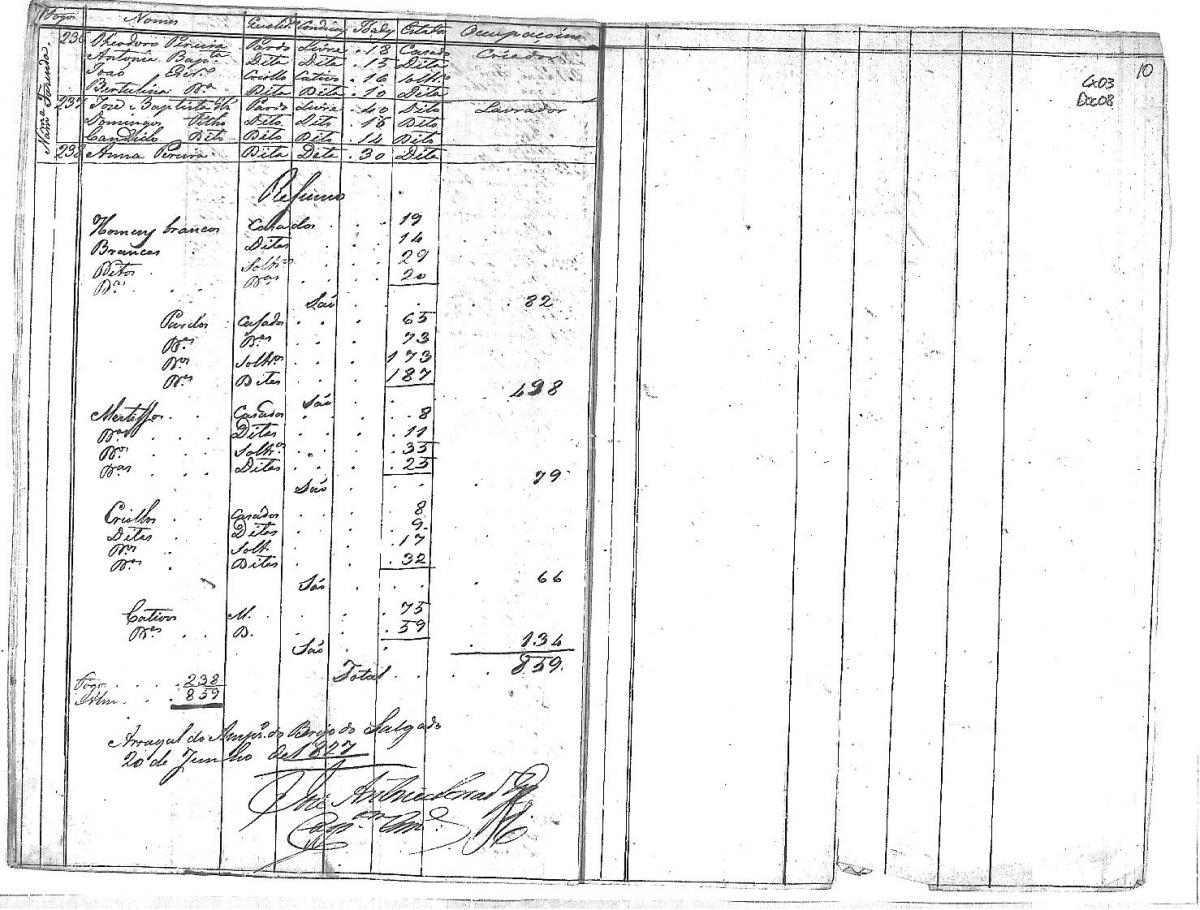 Fogos Nomes Qualid.e Condiçaõ Idad.e Estado Ocupaçoins
236 Theodoro Pereira Pardo Livre 18 Casado Criador
Antonia Bap.ta Dita Dita 15 Dita
Joaõ Criollo Cativo 16 Solt.ro
Bertulina D.a Dita Dita 10 Dita
237 Joze Baptista Pardo Livre 40 Dito Lavrador
Domingos Filho Dito Dito 18 Dito
Candido Dito Dito Dito 14 Dito
238 Anna Pereira Dita Dita 30 Dita
10
Cx03
Doc08
Resumo
Homens brancos Casados 19
Brancas Ditas 14
Ditos Solt.ros 29
D.as D.as 20
Saõ 82
Pardos Casados 65
D.as D.as 73
D.os Solt.ros 173
D.as Ditas 187
Saõ 498
Mestissos Casados 8
D.as Ditas 11
D.os Solt.os 35
D.as Ditas 25
Saõ 79
Criollos Casados 8
Ditas Ditas 9
D.os Solt. 17
D.as Ditas 32
Saõ 66
Cativos M. 75
D.as D. 59
Saõ 134
Total 859
Fogos 238
Alm. 859
Arrayal do Amp.o do Brejo do Salgado
20 de Junho de 1827
Joze Antonio
Cap.am Com.e